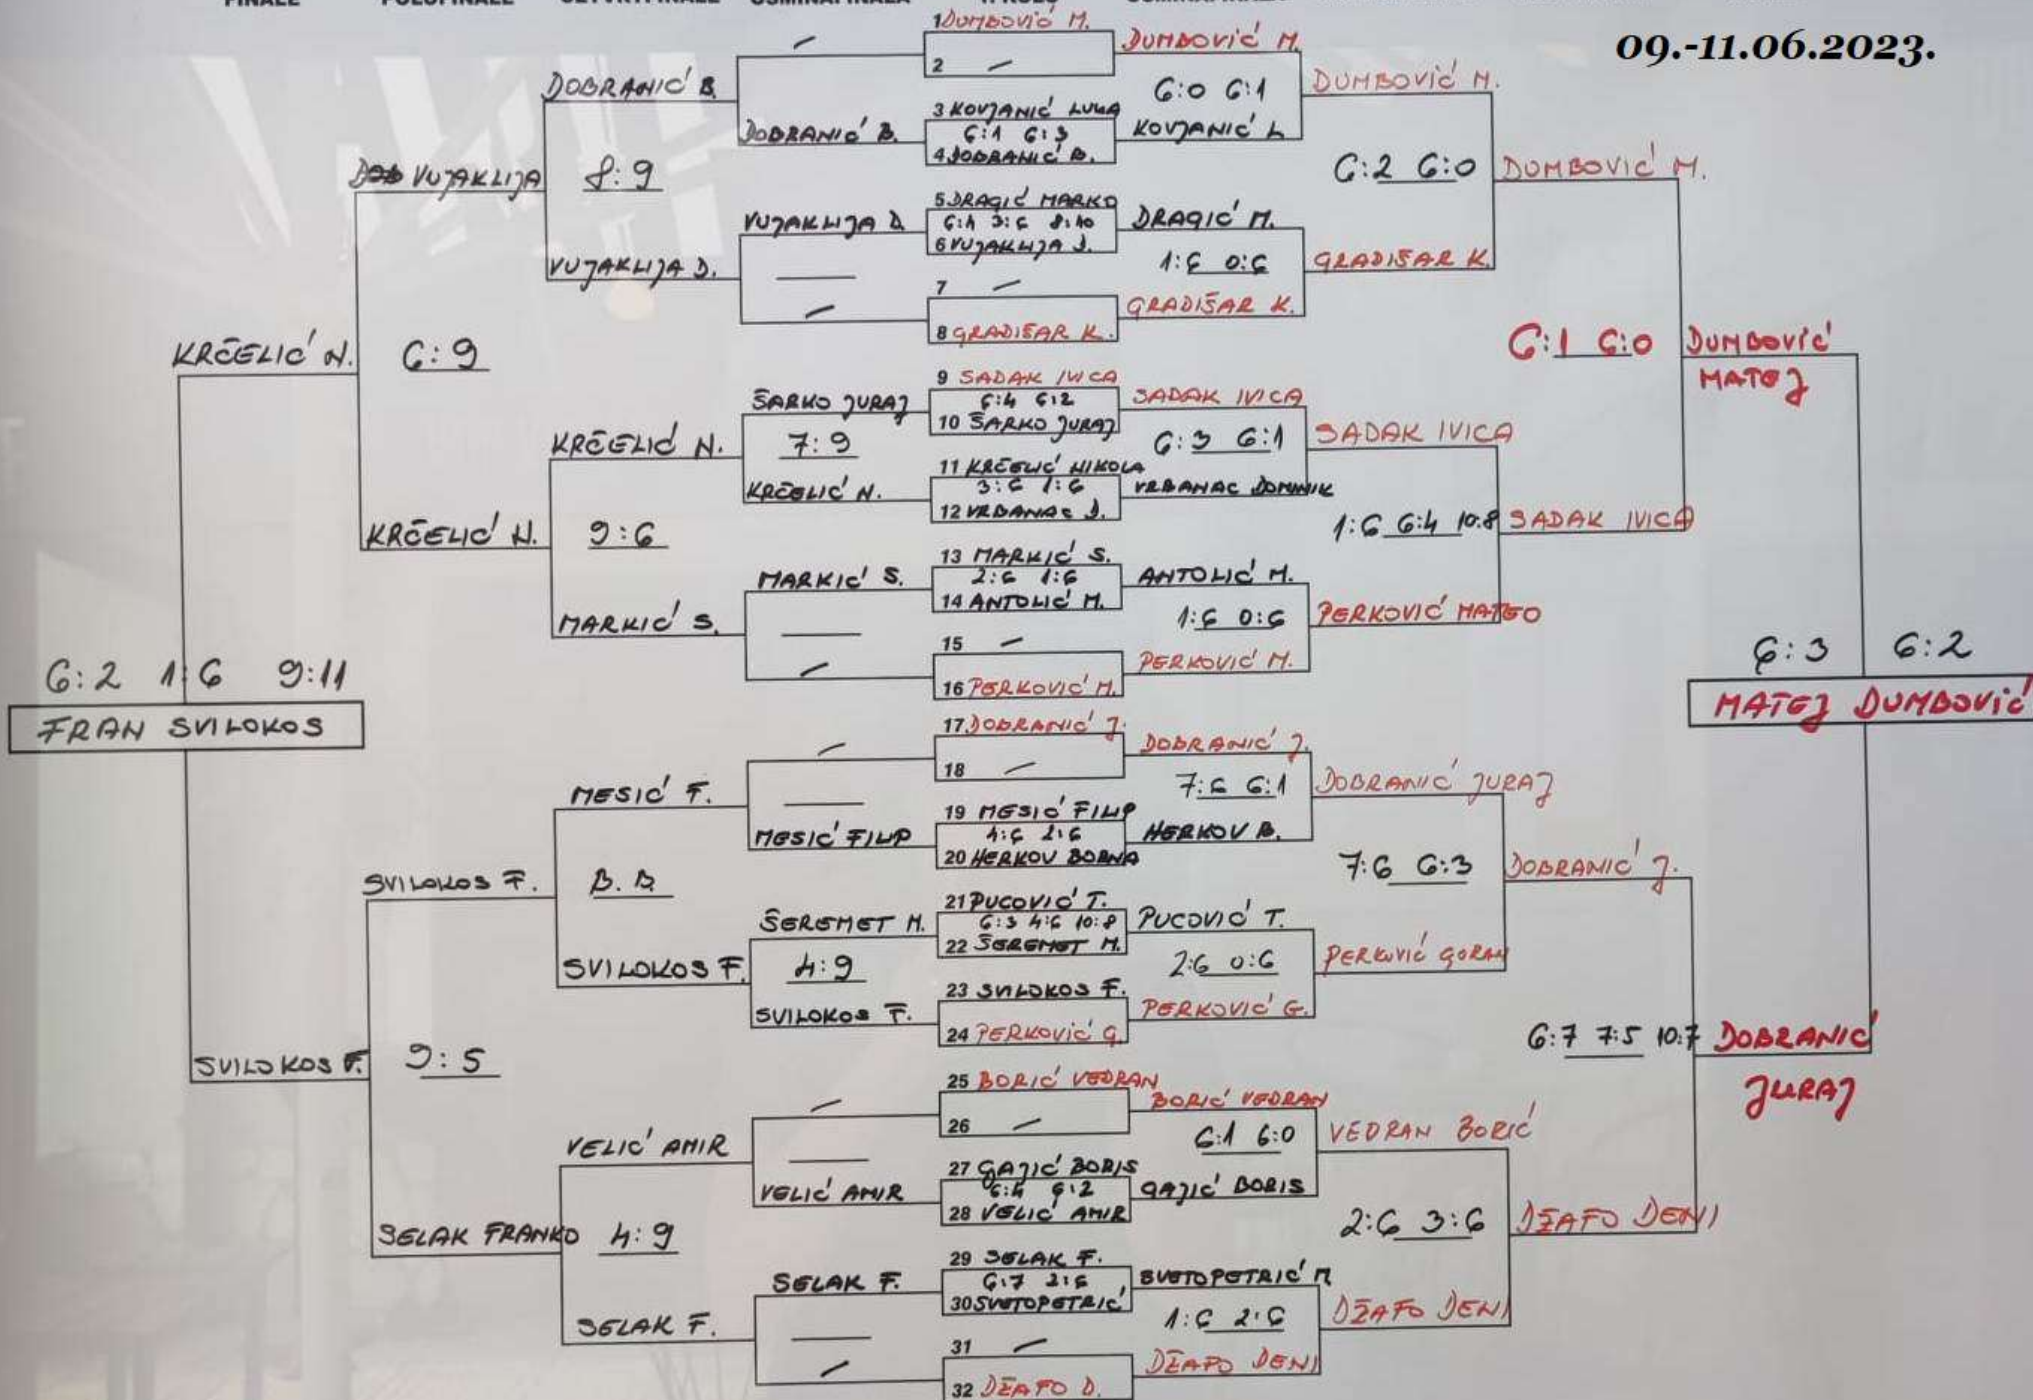 FINALE POLUFINALE ČETVRTFINALE OSMINAFINALA 1. KOLO OSMINAFINALA
09.-11.06.2023.
1 DUMBOVIĆ M.
2 —
3 KOVJANIĆ LUKA
6:1 6:3
4 DOBRANIĆ B.
5 DRAGIĆ MARKO
6:1 3:6 8:10
6 VUJAKLIJA D.
7 —
8 GRADIŠAR K.
9 SADAK IVICA
6:4 6:2
10 ŠARKO JURAJ
11 KRČELIĆ NIKOLA
3:6 1:6
12 VRBANAC D.
13 MARKIĆ S.
2:6 1:6
14 ANTOLIĆ M.
15 —
16 PERKOVIĆ M.
17 DOBRANIĆ J.
18 —
19 MESIĆ FILIP
4:6 2:6
20 HERKOV BORNA
21 PUCOVIĆ T.
6:3 4:6 10:8
22 ŠEREMET M.
23 SVILOKOS F.
24 PERKOVIĆ G.
25 BORIĆ VEDRAN
26 —
27 GAJIĆ BORIS
6:4 6:2
28 VELIĆ AMIR
29 SELAK F.
6:7 2:6
30 SVETOPETRIĆ
31 —
32 DŽAFO D.
DUMBOVIĆ M.
6:0 6:1
KOVJANIĆ L
DRAGIĆ M.
1:6 0:6
GRADIŠAR K.
SADAK IVICA
6:3 6:1
VRBANAC DOMINIK
ANTOLIĆ M.
1:6 0:6
PERKOVIĆ M.
DOBRANIĆ J.
7:6 6:1
HERKOV B.
PUCOVIĆ T.
2:6 0:6
PERKOVIĆ G.
BORIĆ VEDRAN
6:1 6:0
GAJIĆ BORIS
SVETOPETRIĆ M
1:6 2:6
DŽAFO DENI
DUMBOVIĆ M.
6:2 6:0
GRADIŠAR K.
SADAK IVICA
1:6 6:4 10:8
PERKOVIĆ MATEO
DOBRANIĆ JURAJ
7:6 6:3
PERKOVIĆ GORAN
VEDRAN BORIĆ
2:6 3:6
DŽAFO DENI
DUMBOVIĆ M.
6:1 6:0
SADAK IVICA
DOBRANIĆ J.
6:7 7:5 10:7
DŽAFO DENI
DUMBOVIĆ
MATEJ
6:3 6:2
MATEJ DUMBOVIĆ
DOBRANIĆ
JURAJ
—
DOBRANIĆ B.
VUJAKLIJA D.
—
—
ŠARKO JURAJ
7:9
KRČELIĆ N.
MARKIĆ S.
—
—
—
—
MESIĆ FILIP
ŠEREMET M.
4:9
SVILOKOS F.
—
—
VELIĆ AMIR
SELAK F.
—
—
DOBRANIĆ B.
8:9
VUJAKLIJA D.
KRČELIĆ N.
9:6
MARKIĆ S.
MESIĆ F.
B.B.
SVILOKOS F.
VELIĆ AMIR
4:9
SELAK F.
VUJAKLIJA
6:9
KRČELIĆ N.
SVILOKOS F.
9:5
SELAK FRANKO
KRČELIĆ N.
6:2 1:6 9:11
FRAN SVILOKOS
SVILOKOS F.